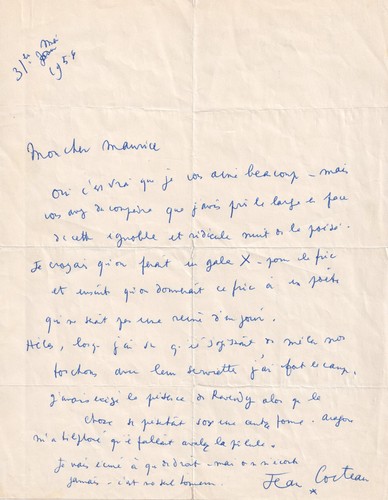 31 Mai
1954
Mon cher Maurice
Oui c'est vrai que je vous aime beaucoup - mais
vous avez dû comprendre que j'avais pris le large en face
de cette ignoble et ridicule nuit de la poésie.
Je croyais qu'on ferait un gala X - pour le fric
et ensuite qu'on donnerait ce fric à un poète
qui ne serait pas une reine d'un jour.
Hélas, lorsque j'ai su qu'il s'agissait de mêler nos
torchons avec leurs serviettes j'ai foutu le camp.
J'avais exigé la présence de Reverdy alors que la
chose se présentait sous une autre forme. Aragon
m'a téléphoné qu'il fallait avaler la pilule.
Je vous écrire à
jamais - c'est
Jean Cocteau
*